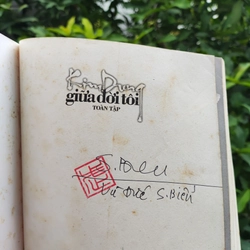 Kim Dung
giữa đời tôi
TOÀN TẬP
Vũ Đức S. Biển